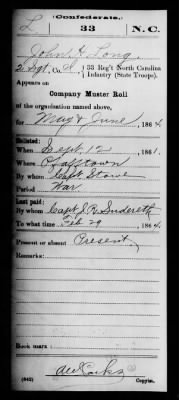 Confederate.
L 33 N.C.
John H. Long
2 Sgt, Co. I, 33 Reg't North Carolina
Infantry (State Troops).
Appears on
Company Muster Roll
of the organization named above,
for May & June, 1864
Enlisted:
When Sept. 12, 1861.
Where Pfafftown
By whom Capt Stowe
Period War
Last paid:
By whom Capt J. R. Sudereth
To what time Feb 29, 1864.
Present or absent Present
Remarks:
Book mark:
(642) Copyist.